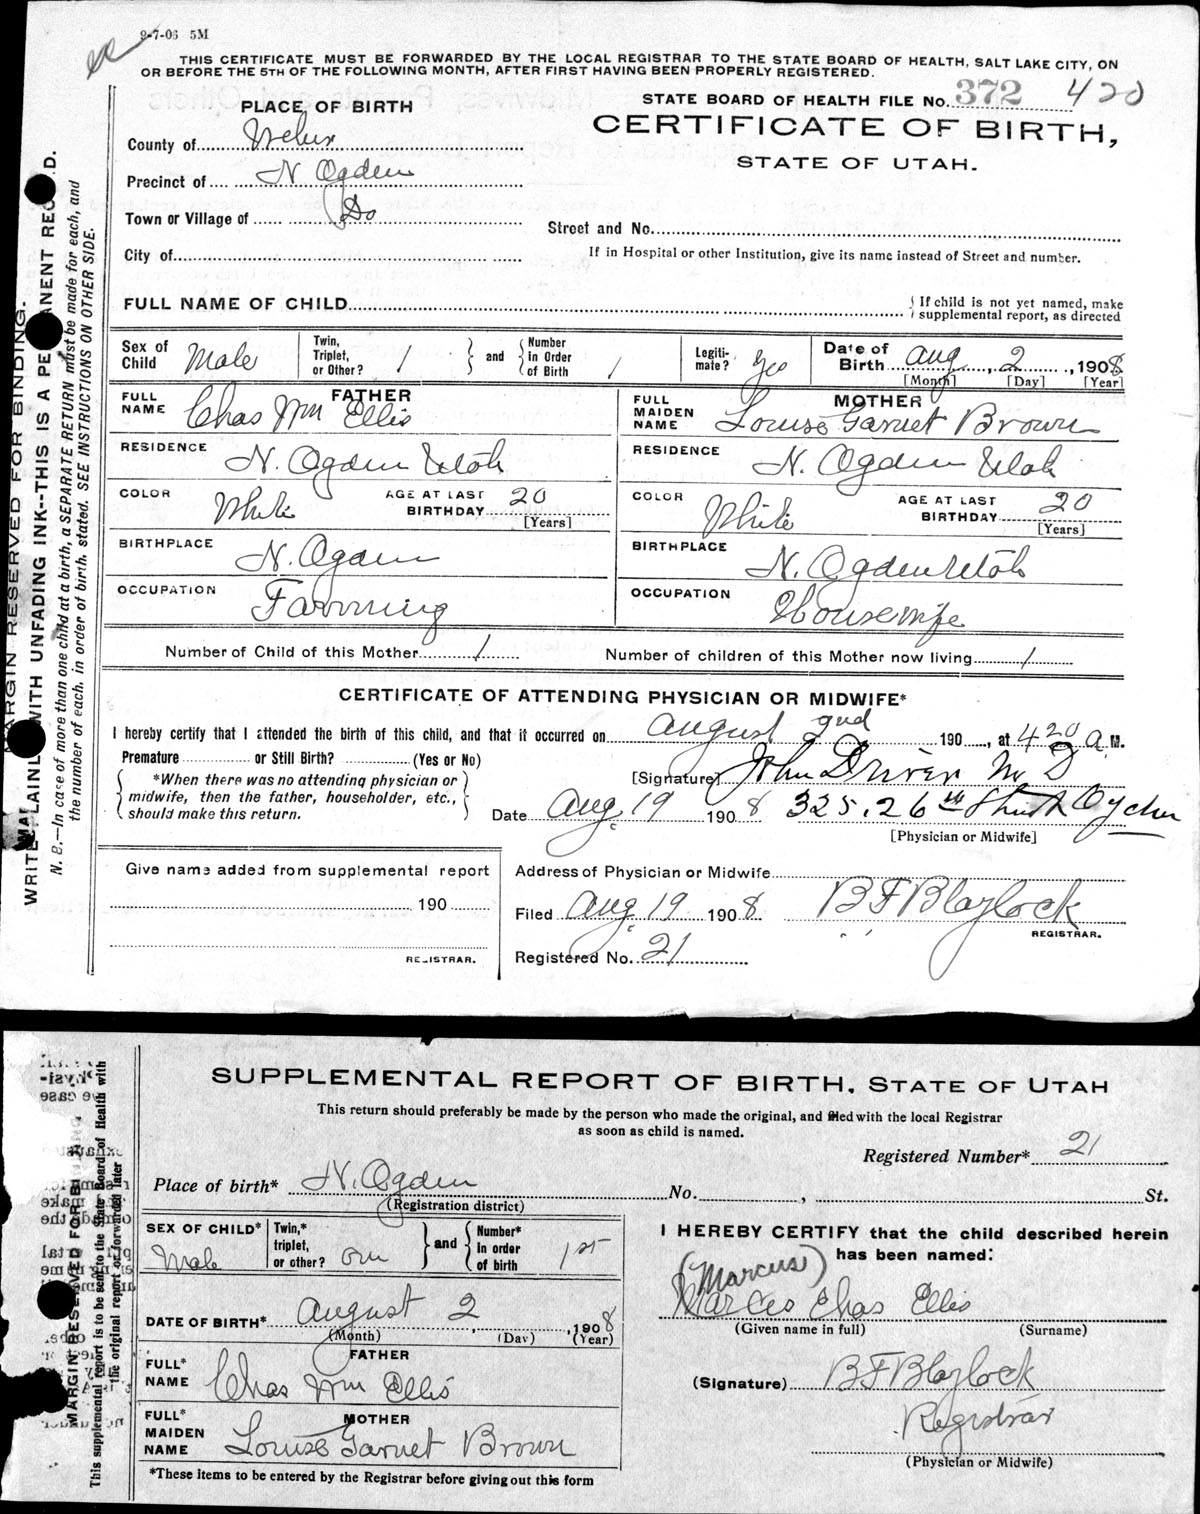 9-7-06 5M
THIS CERTIFICATE MUST BE FORWARDED BY THE LOCAL REGISTRAR TO THE STATE BOARD OF HEALTH, SALT LAKE CITY, ON
OR BEFORE THE 5TH OF THE FOLLOWING MONTH, AFTER FIRST HAVING BEEN PROPERLY REGISTERED.
STATE BOARD OF HEALTH FILE No. 372 420
CERTIFICATE OF BIRTH,
STATE OF UTAH.
PLACE OF BIRTH
County of Weber
Precinct of N Ogden
Town or Village of Do
City of
Street and No.
If in Hospital or other Institution, give its name instead of Street and number.
FULL NAME OF CHILD
If child is not yet named, make
supplemental report, as directed
Sex of Child Male
Twin, Triplet, or Other? 1
and Number in Order of Birth 1
Legitimate? Yes
Date of Birth Aug 2, 1908
[Month] [Day] [Year]
FATHER
FULL NAME Chas Wm Ellis
RESIDENCE N. Ogden Utah
COLOR White
AGE AT LAST BIRTHDAY 20
[Years]
BIRTHPLACE N. Ogden
OCCUPATION Farming
MOTHER
FULL MAIDEN NAME Louise Garnet Brown
RESIDENCE N. Ogden Utah
COLOR White
AGE AT LAST BIRTHDAY 20
[Years]
BIRTHPLACE N. Ogden Utah
OCCUPATION Housewife
Number of Child of this Mother 1
Number of children of this Mother now living 1
CERTIFICATE OF ATTENDING PHYSICIAN OR MIDWIFE*
I hereby certify that I attended the birth of this child, and that it occurred on August 2nd 190, at 4 20 a M.
Premature or Still Birth? (Yes or No)
*When there was no attending physician or
midwife, then the father, householder, etc.,
should make this return.
[Signature] John Driver M D
Date Aug. 19 1908 325. 26th Street Ogden
[Physician or Midwife]
Give name added from supplemental report
190
REGISTRAR.
Address of Physician or Midwife
Filed Aug. 19 1908 B F Blaylock
REGISTRAR.
Registered No. 21
MARGIN RESERVED FOR BINDING.
WRITE PLAINLY WITH UNFADING INK--THIS IS A PERMANENT RECORD.
N. B.—In case of more than one child at a birth, a SEPARATE RETURN must be made for each, and
the number of each, in order of birth, stated. SEE INSTRUCTIONS ON OTHER SIDE.
SUPPLEMENTAL REPORT OF BIRTH, STATE OF UTAH
This return should preferably be made by the person who made the original, and filed with the local Registrar
as soon as child is named.
Registered Number* 21
Place of birth* N. Ogden No. , St.
(Registration district)
SEX OF CHILD* Male
Twin,* triplet, or other? one
and Number* in order of birth 1st
DATE OF BIRTH* August 2, 1908
(Month) (Day) (Year)
FATHER
FULL* NAME Chas Wm Ellis
MOTHER
FULL* MAIDEN NAME Louise Garnet Brown
*These items to be entered by the Registrar before giving out this form
I HEREBY CERTIFY that the child described herein
has been named:
(Marcus)
Marces Chas Ellis
(Given name in full) (Surname)
(Signature) B F Blaylock
Registrar
(Physician or Midwife)
MARGIN RESERVED FOR BINDING
This supplemental report is to be sent to the State Board of Health with
the original report or forwarded later